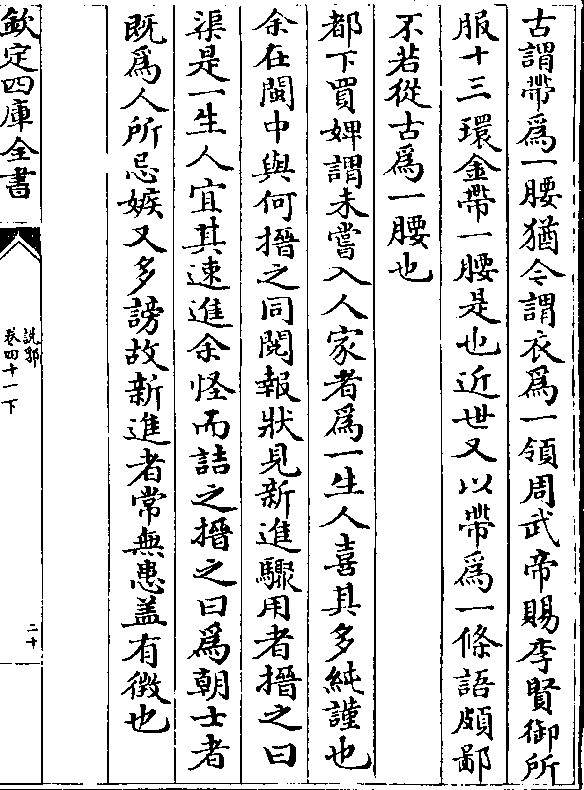 古謂帶爲一腰猶今謂衣爲一領周武帝賜李賢御所
服十三環金帶一腰是也近世又以帶爲一條語頗鄙
不若從古爲一腰也
都下買婢謂未嘗入人家者爲一生人喜其多純謹也
余在閩中與何搢之同閱報狀見新進驟用者搢之曰
渠是一生人宜其速進余怪而詰之搢之曰爲朝士者
既爲人所忌嫉又多謗故新進者常無患盖有徴也
欽定四庫全書
說郛
卷四十一下
二十